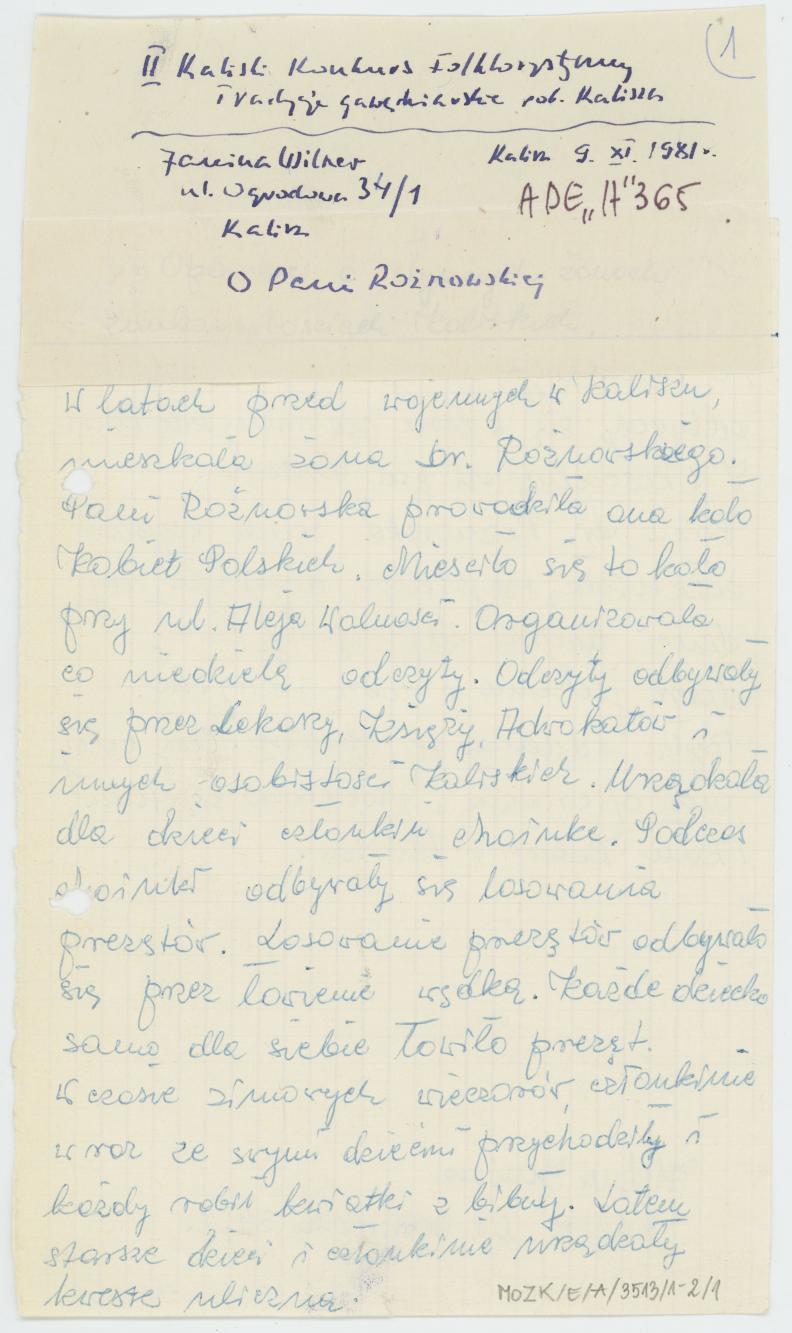 1
II Kaliski Konkurs Folklorystyczny
Tradycje gawędziarskie pok. Kalisza
Janina Wilner
Kalisz 9. XI. 1981 r.
ul. Ogrodowa 34/1
ADE „A" 365
Kalisz
O Pani Rożnowskiej
W latach przed wojennych w Kaliszu,
mieszkała żona Dr. Rożnowskiego.
Pani Rożnowska prowadziła ona koło
Kobiet Polskich. Mieściło się to koło
przy ul. Aleja Wolności. Organizowała
co niedzielę odczyty. Odczyty odbywały
się przez Lekarzy, Księży, Adwokatów i
innych osobistości Kaliskich. Urządzała
dla dzieci członkiń choinkę. Podczas
choinki odbywały się losowania
prezętów. Losowanie prezętów odbywało
się przez łowienie wędką. Każde dziecko
samo dla siebie łowiło prezęt.
W czasie zimowych wieczorów, członkinie
w raz ze swymi dziećmi przychodziły i
każdy robił kwiatki z bibuły. Latem
starsze dzieci i członkinie urządzały
kweste uliczna.
MOZK/E/A/3513/1-2/1